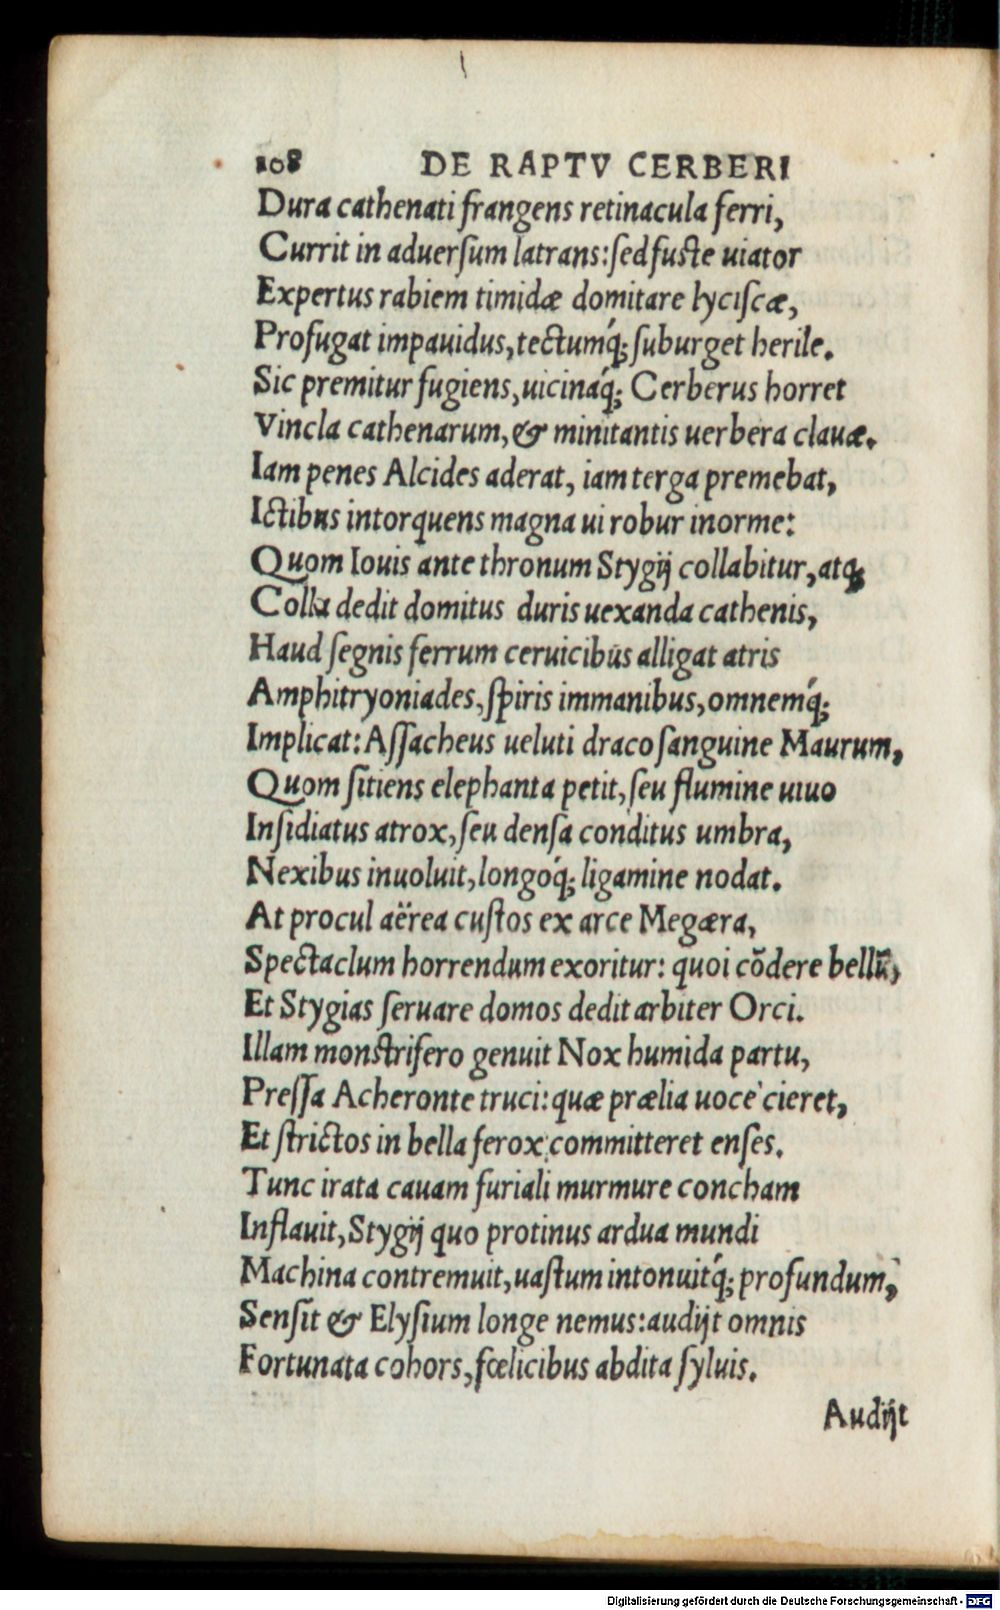 108 DE RAPTV CERBERI
Dura cathenati frangens retinacula ferri,
Currit in aduersum latrans: sed fuste uiator
Expertus rabiem timidæ domitare lyciscæ,
Profugat impauidus, tectumq́; suburget herile.
Sic premitur fugiens, uicinaq́; Cerberus horret
Vincla cathenarum, & minitantis uerbera clauæ.
Iam penes Alcides aderat, iam terga premebat,
Ictibus intorquens magna ui robur inorme:
Quom Iouis ante thronum Stygij collabitur, atq;
Colla dedit domitus duris uexanda cathenis,
Haud segnis ferrum ceruicibus alligat atris
Amphitryoniades, spiris immanibus, omnemq́;
Implicat: Assacheus ueluti draco sanguine Maurum,
Quom sitiens elephanta petit, seu flumine uiuo
Insidiatus atrox, seu densa conditus umbra,
Nexibus inuoluit, longoq́; ligamine nodat.
At procul aërea custos ex arce Megæra,
Spectaclum horrendum exoritur: quoi cõdere bellũ,
Et Stygias seruare domos dedit arbiter Orci.
Illam monstrifero genuit Nox humida partu,
Pressa Acheronte truci: quæ prælia uoce cieret,
Et strictos in bella ferox committeret enses.
Tunc irata cauam furiali murmure concham
Inflauit, Stygij quo protinus ardua mundi
Machina contremuit, uastum intonuitq́; profundum,
Sensit & Elysium longe nemus: audijt omnis
Fortunata cohors, fœlicibus abdita syluis.
Audijt
Digitalisierung gefördert durch die Deutsche Forschungsgemeinschaft - DFG